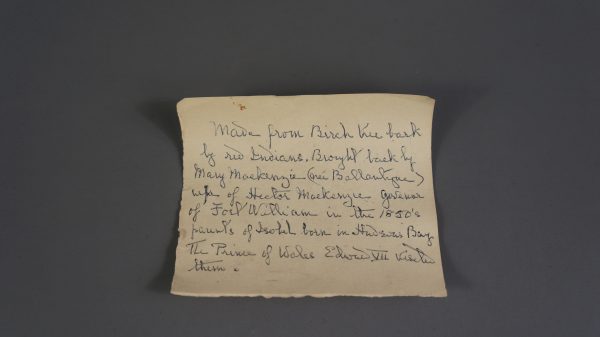 Made from Birch tree bark
by red Indians. Brought back by
Mary Mackenzie (neé Ballantyne)
wife of Hector Mackenzie Govenor
of Fort William in the 1850's
parents of Isobel born in Hudson's Bay
The Prince of Wales Edward VII visited
them.